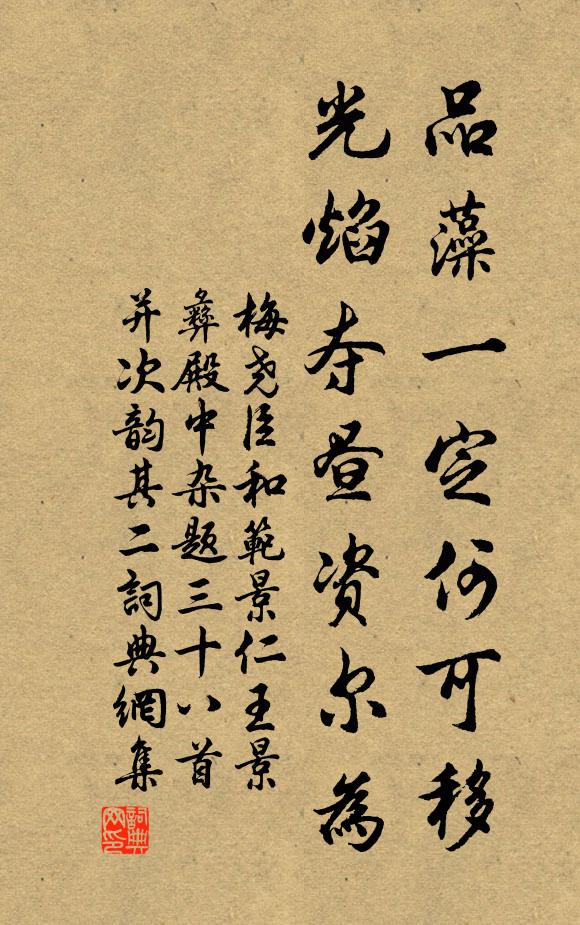 品藻一定何可移
光焰夺昼资尔為
梅尧臣和範景仁王景
彝殿中杂题三十八首
并次韵其二詞典網集
詞典网印